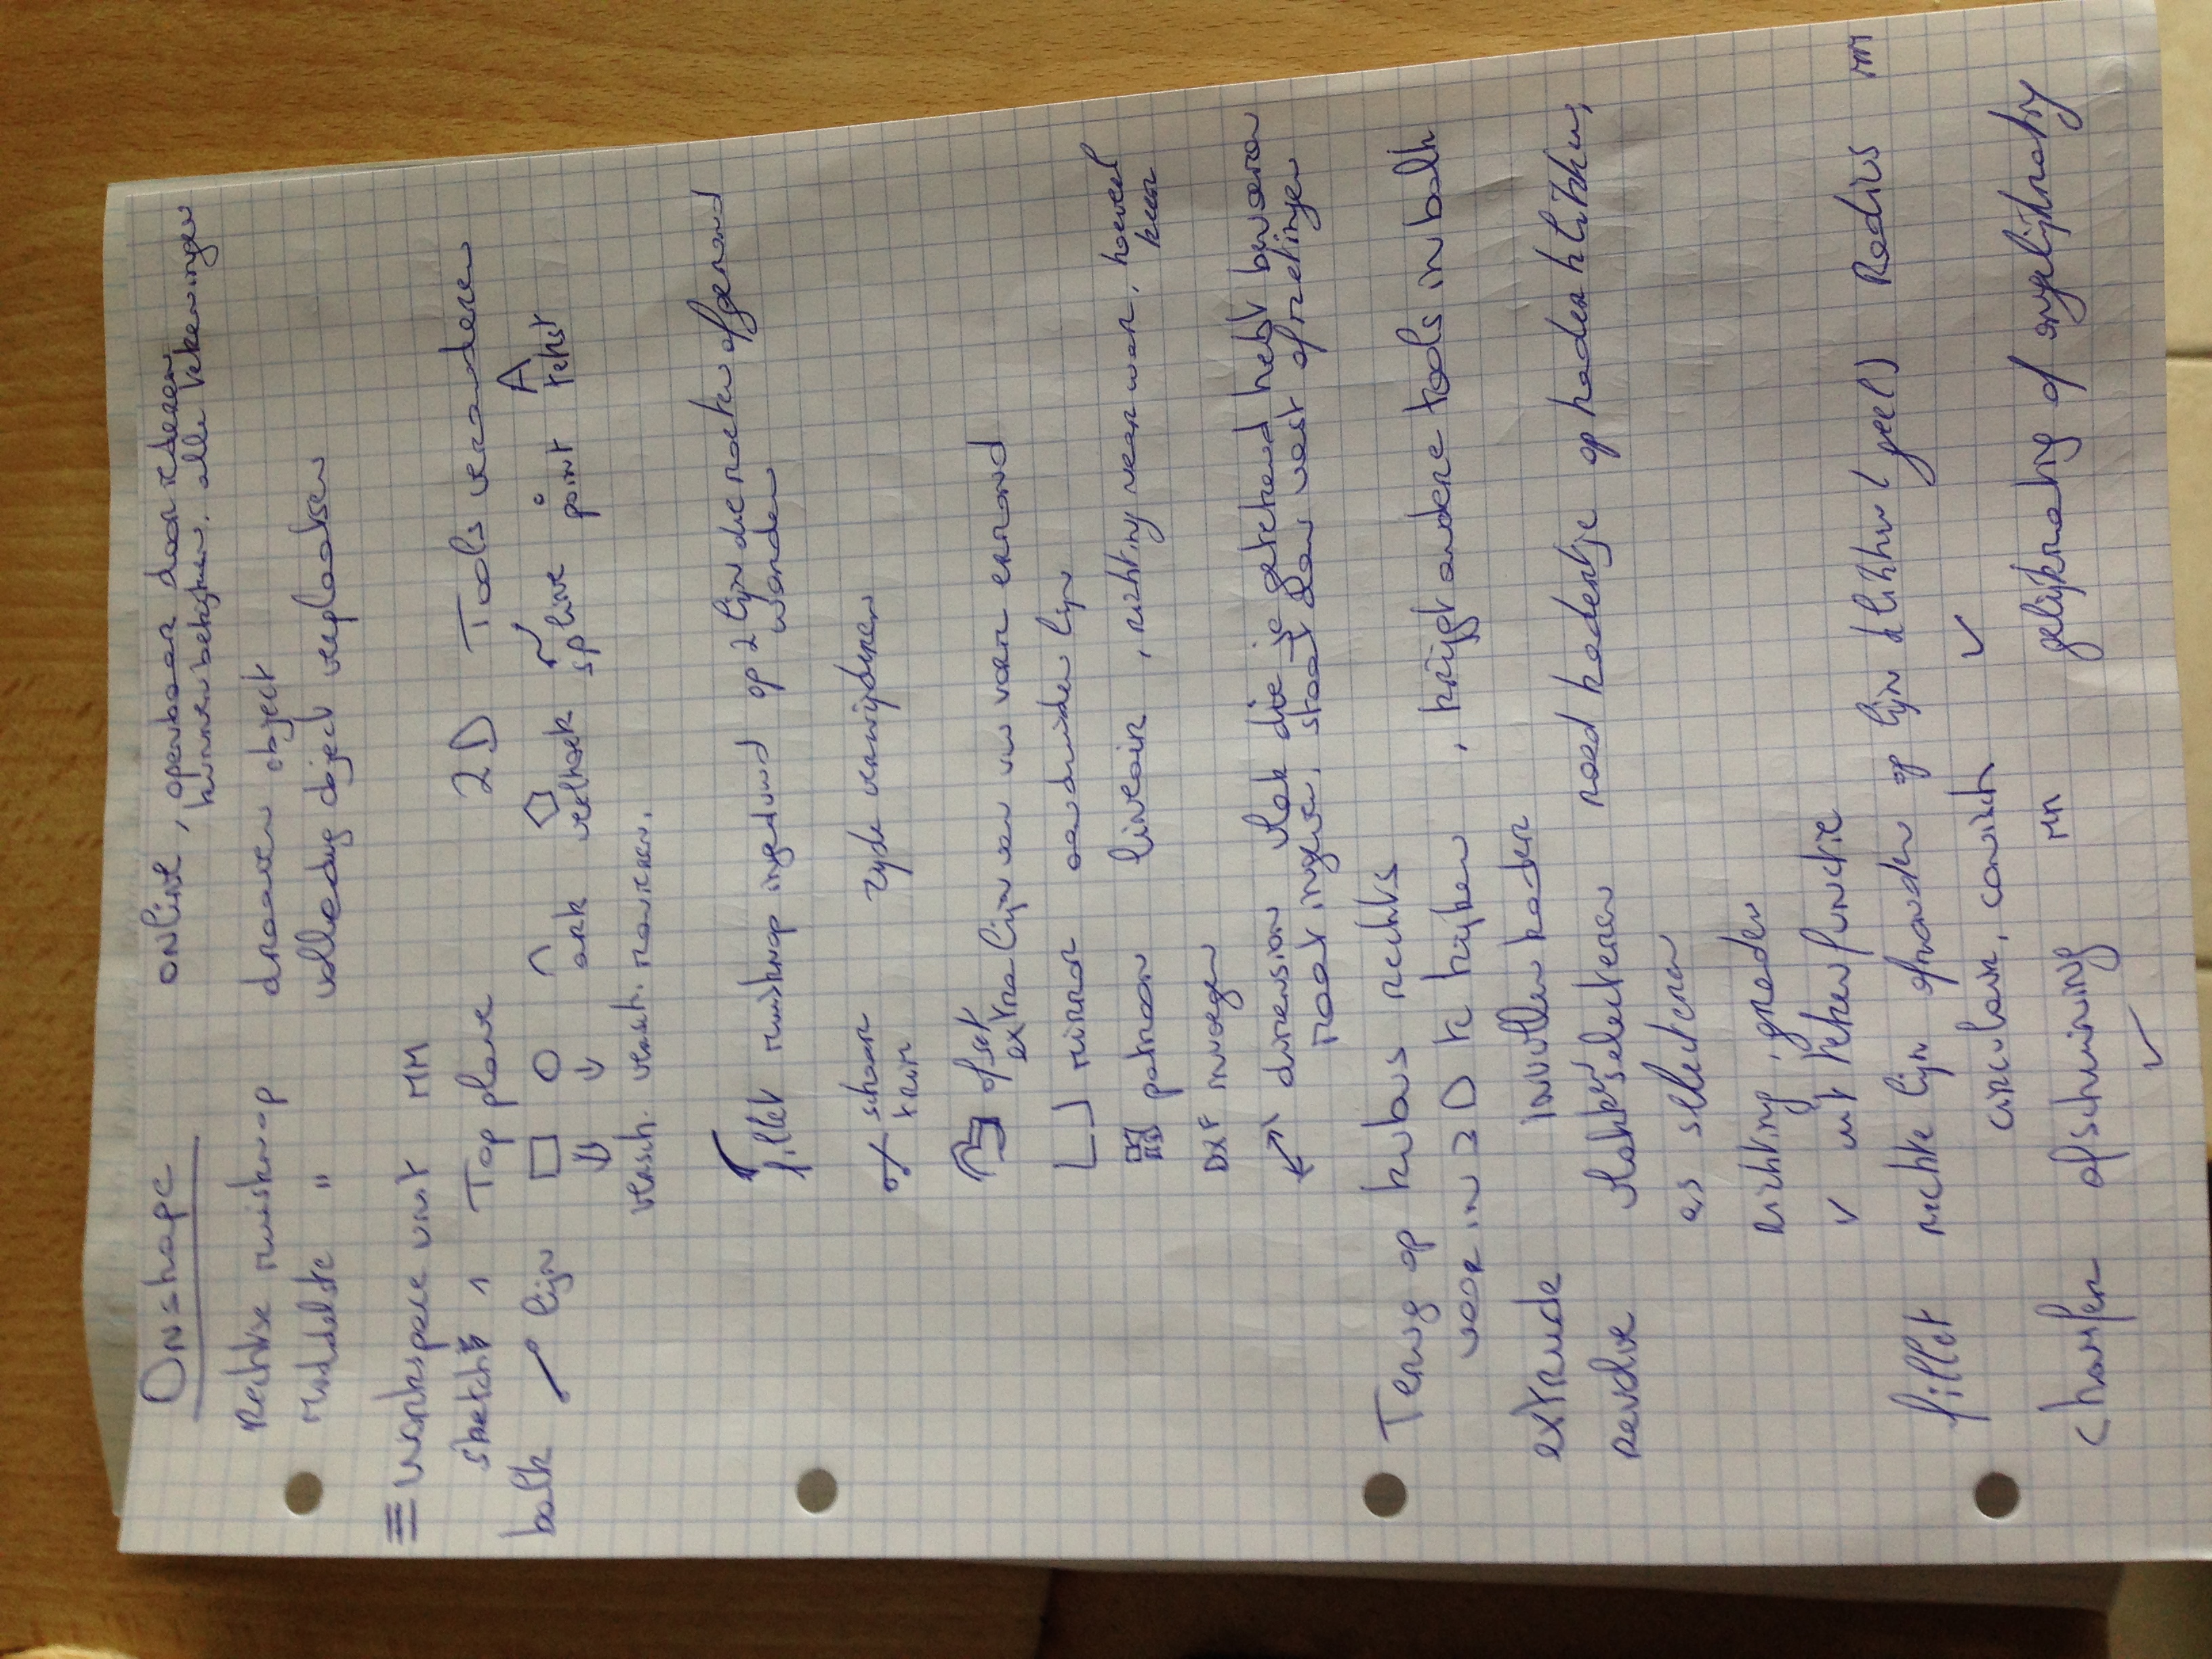 Onshape online, openbaar door iedereen
kunnen bekijken. alle tekeningen
Rechtse muisknop draaien object
Middelste " volledig object verplaatsen
≡ Workspace unit MM
sketch 1 Top plane 2D Tools veranderen
balk lijn ark veelhoek spline point A tekst
versch. versch. manieren.
fillet muisknop ingeduwd op 2 lijn die moeten afgerond
worden
schaar zijde verwijderen
trim
ofset
extra lijn van uw vorm errond
mirror aanduiden lijn
patroon lineair, richting naar waar, hoeveel
keer
DXF invoegen
dimension vlak die je getekend hebt bevoeren
maat ingeven. staat dan vast afmetingen
Terug op kubus rechts
voor in 3D te kijken, krijgt andere tools in balk
extrude invullen kader
revolve vlakken selecteren rood kadertje op kader klikken,
as selecteren
richting, graden
✓ uit tekenfunctie
fillet rechte lijn afronden op lijn klikken (geel) Radius mm
circulair, conisch ✓
chamfer afschuining mm gelijkmatig of ongelijkmatig
✓